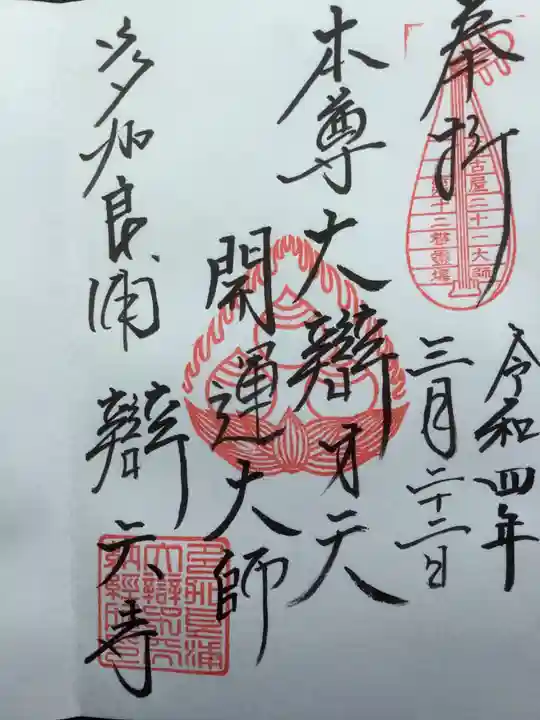 奉拝
古屋二十一大師
十二番霊場
令和四年
三月二十二日
本尊大辯才天
開運大師
多加良浦
辯天寺